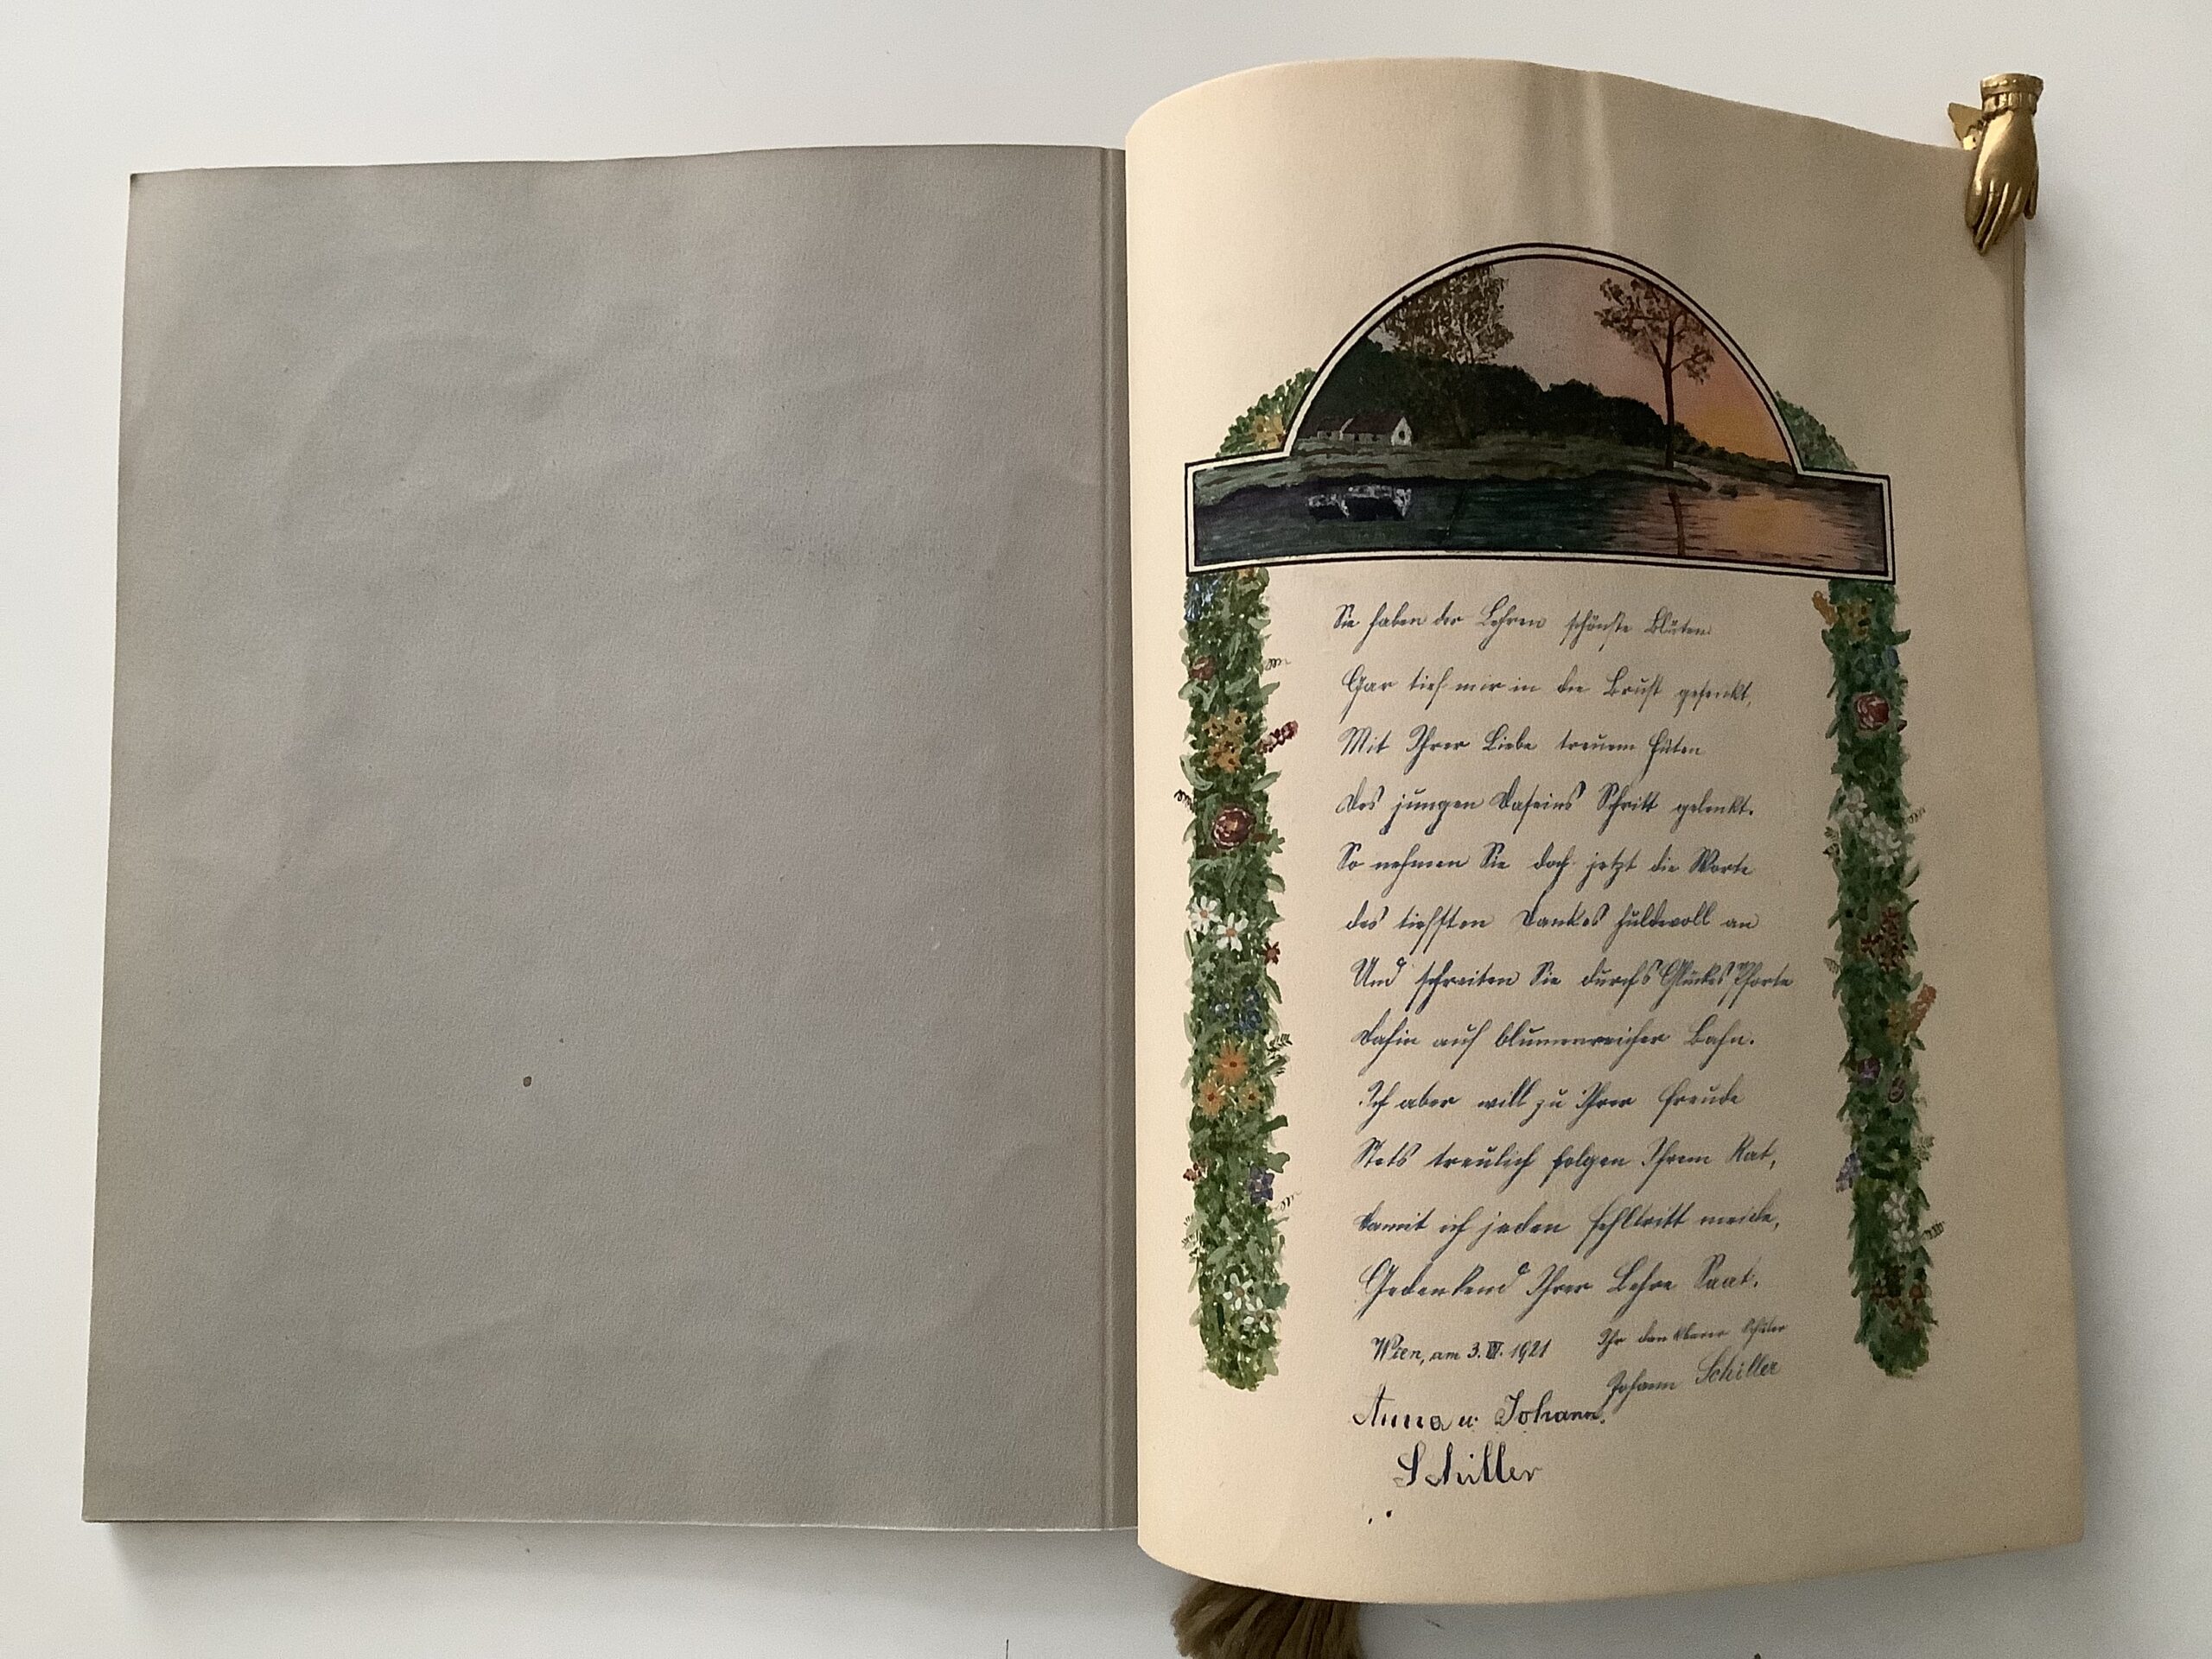 Sie haben der Lehren schönste Blüten
Gar tief mir in die Brust gesenkt,
Mit Ihrer Liebe treuem Hüten
Des jungen Daseins Schritt gelenkt.
So nehmen Sie doch jetzt die Worte
des tiefsten Dankes huldvoll an
Und schreiten Sie durchs Glückes Pforte
Dahin auf blumenreicher Bahn.
Ich aber will zu Ihrer Freude
Stets treulich folgen Ihrem Rat,
Damit ich jeden Fehltritt meide,
Gedenkend Ihrer Lehre Saat.
Wien, am 3. IV. 1921 Ihr dankbarer Schüler
Johann Schiller
Anna u. Johann
Schiller